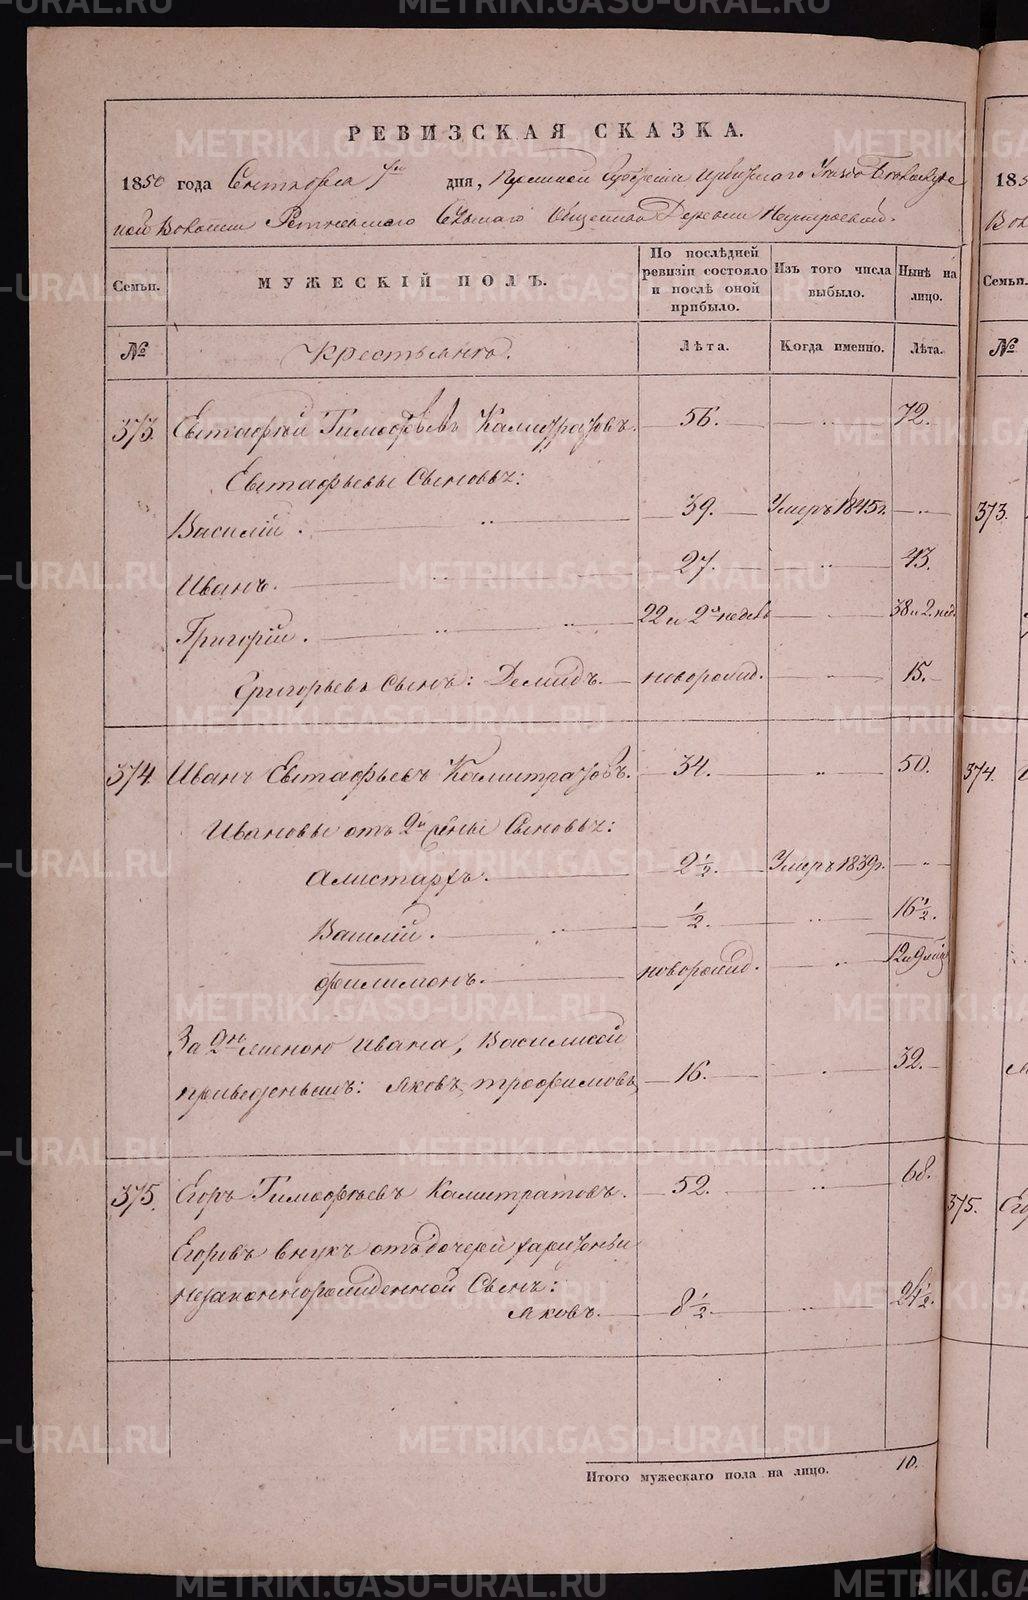 РЕВИЗСКАЯ СКАЗКА.
1850 года Сентября дня, Пермской Губернии Ирбитского
ной Волости Сельскаго общества Деревни
Семьи.
МУЖЕСКІЙ ПОЛЪ.
По послѣдней ревизіи состояло и послѣ оной прибыло.
Изъ того числа выбыло.
Нынѣ на лицо.
№
Крестьянъ.
Лѣта.
Когда именно.
Лѣта.
373. Евстафій Тимофѣевъ Калистратовъ. 56. 72.
Евстафьевы Сыновья:
Василій. 39. Умеръ 1845г.
Иванъ. 27. 43.
Григорій. 22 и 2 недель 38 и 2. нед.
Григорьевъ сынъ: Демидъ. новорожд. 15.
374. Иванъ Евстафьевъ Калистратовъ. 34. 50.
Ивановы отъ 2й жены Сыновья:
Алистархъ. 2½. Умеръ 1839г.
Василій. ½. 16½.
Филимонъ. новорожд. 12 и 9 мѣс.
За 2ю женою Ивана, Василисой
приведенышъ: Яковъ Трофимовъ 16. 32.
375. Егоръ Тимофѣевъ Калистратовъ. 52. 68.
Егоровъ внукъ отъ дочери
незаконнорожденной Сынъ:
Яковъ. 8½. 24½.
Итого мужескаго пола на лицо. 10.
185
Семьи.
№
373.
374.
375.
METRIKI.GASO-URAL.RU